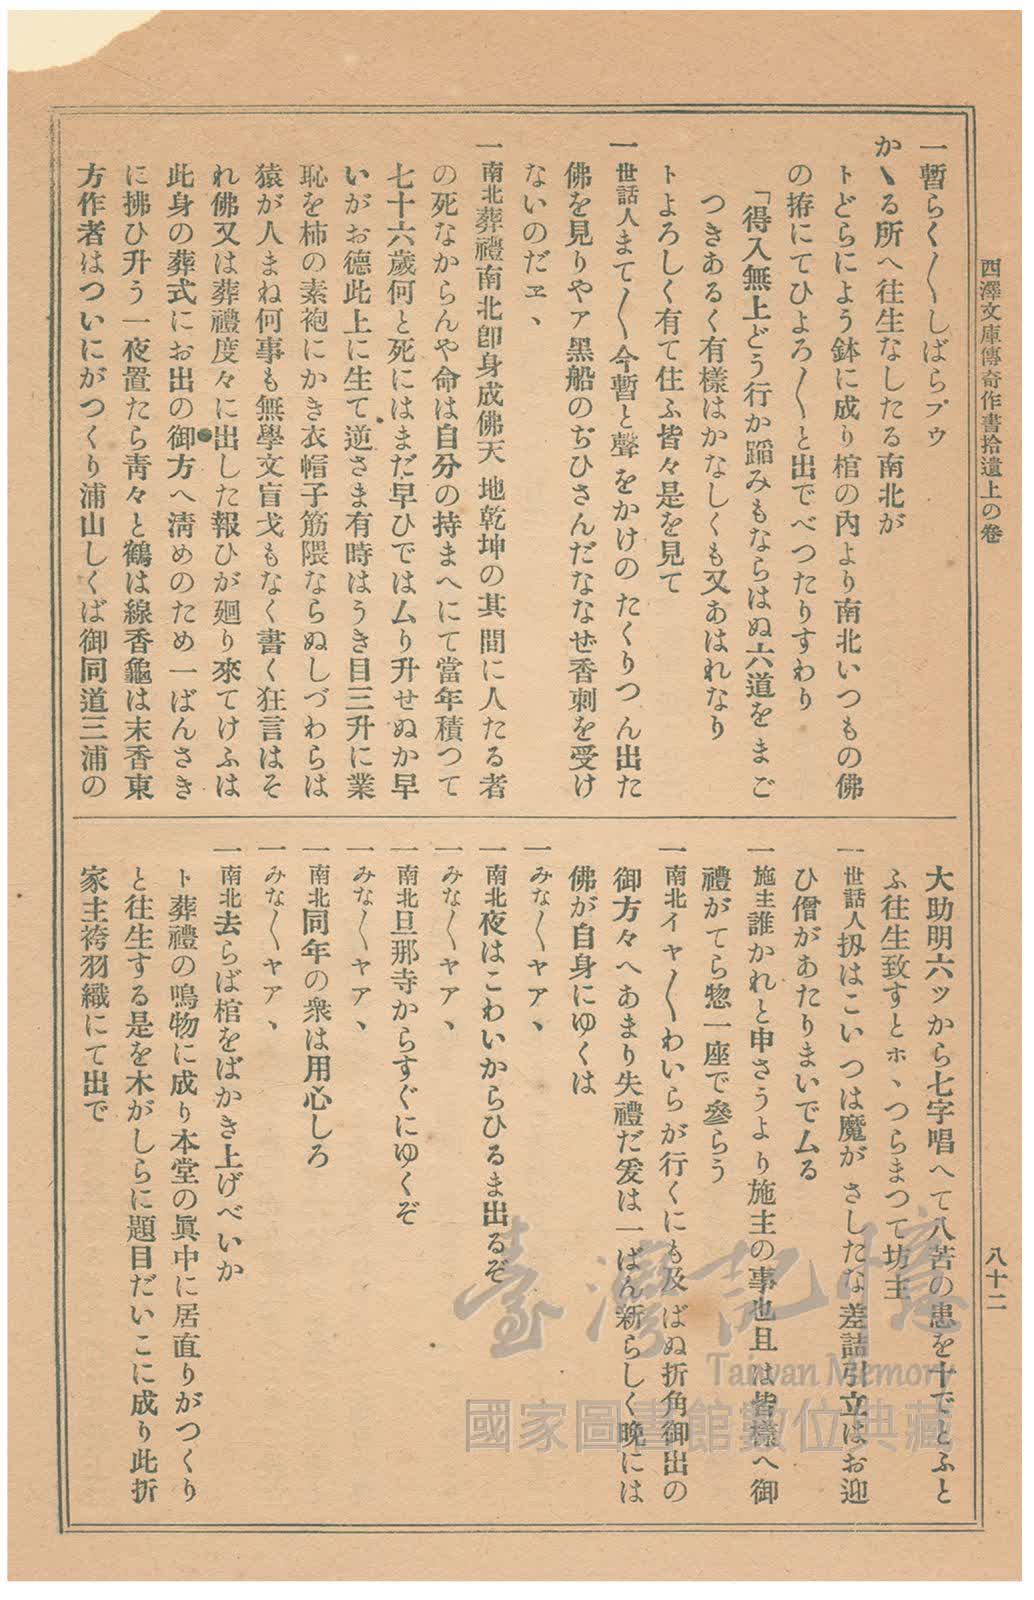 西澤文庫傳奇作書拾遺上の卷
八十二
一暫らく〳〵しばらプゥ
かゝる所へ往生なしたる南北が
トどらによう鉢に成り棺の內より南北いつもの佛
の拵にてひよろ〳〵と出でべつたりすわり
「得入無上どう行か蹈みもならはぬ六道をまご
つきあるく有樣はかなしくも又あはれなり
トよろしく有て住ふ皆々是を見て
一世話人まて〳〵今暫と聲をかけのたくりつん出た
佛を見りやア黑船のぢひさんだななぜ香剌を受け
ないのだヱヽ
一南北葬禮南北卽身成佛天地乾坤の其間に人たる者
の死なからんや命は自分の持まへにて當年積つて
七十六歲何と死にはまだ早ひではムり升せぬか早
いがお德此上に生て逆さま有時はうき目三升に業
恥を柿の素袍にかき衣帽子筋隈ならぬしづわらは
猿が人まね何事も無學文盲戈もなく書く狂言はそ
れ佛又は葬禮度々に出した報ひが廻り來てけふは
此身の葬式にお出の御方へ淸めのため一ばんさき
に拂ひ升う一夜置たら靑々と鶴は線香龜は末香東
方作者はついにがつくり浦山しくば御同道三浦の
大助明六ッから七字唱へて八苦の患を十でとふと
ふ往生致すとホヽつらまつて坊主
一世話人扨はこいつは魔がさしたな差詰引立はお迎
ひ僧があたりまいでムる
一施主誰かれと申さうより施主の事也且は皆樣へ御
禮がてら惣一座で參らう
一南北イヤ〳〵わいらが行くにも及ばぬ折角御出の
御方々へあまり失禮だ爰は一ばん新らしく晩には
佛が自身にゆくは
一みな〳〵ヤア、
一南北夜はこわいからひるま出るぞ
一みな〳〵ヤア、
一南北旦那寺からすぐにゆくぞ
一みな〳〵ヤア、
一南北同年の衆は用心しろ
一みな〳〵ヤア、
一南北去らば棺をばかき上げべいか
ト葬禮の鳴物に成り本堂の眞中に居直りがつくり
と往生する是を木がしらに題目だいこに成り此折
家主袴羽織にて出で
臺灣記憶
Taiwan Memory
國家圖書館數位典藏